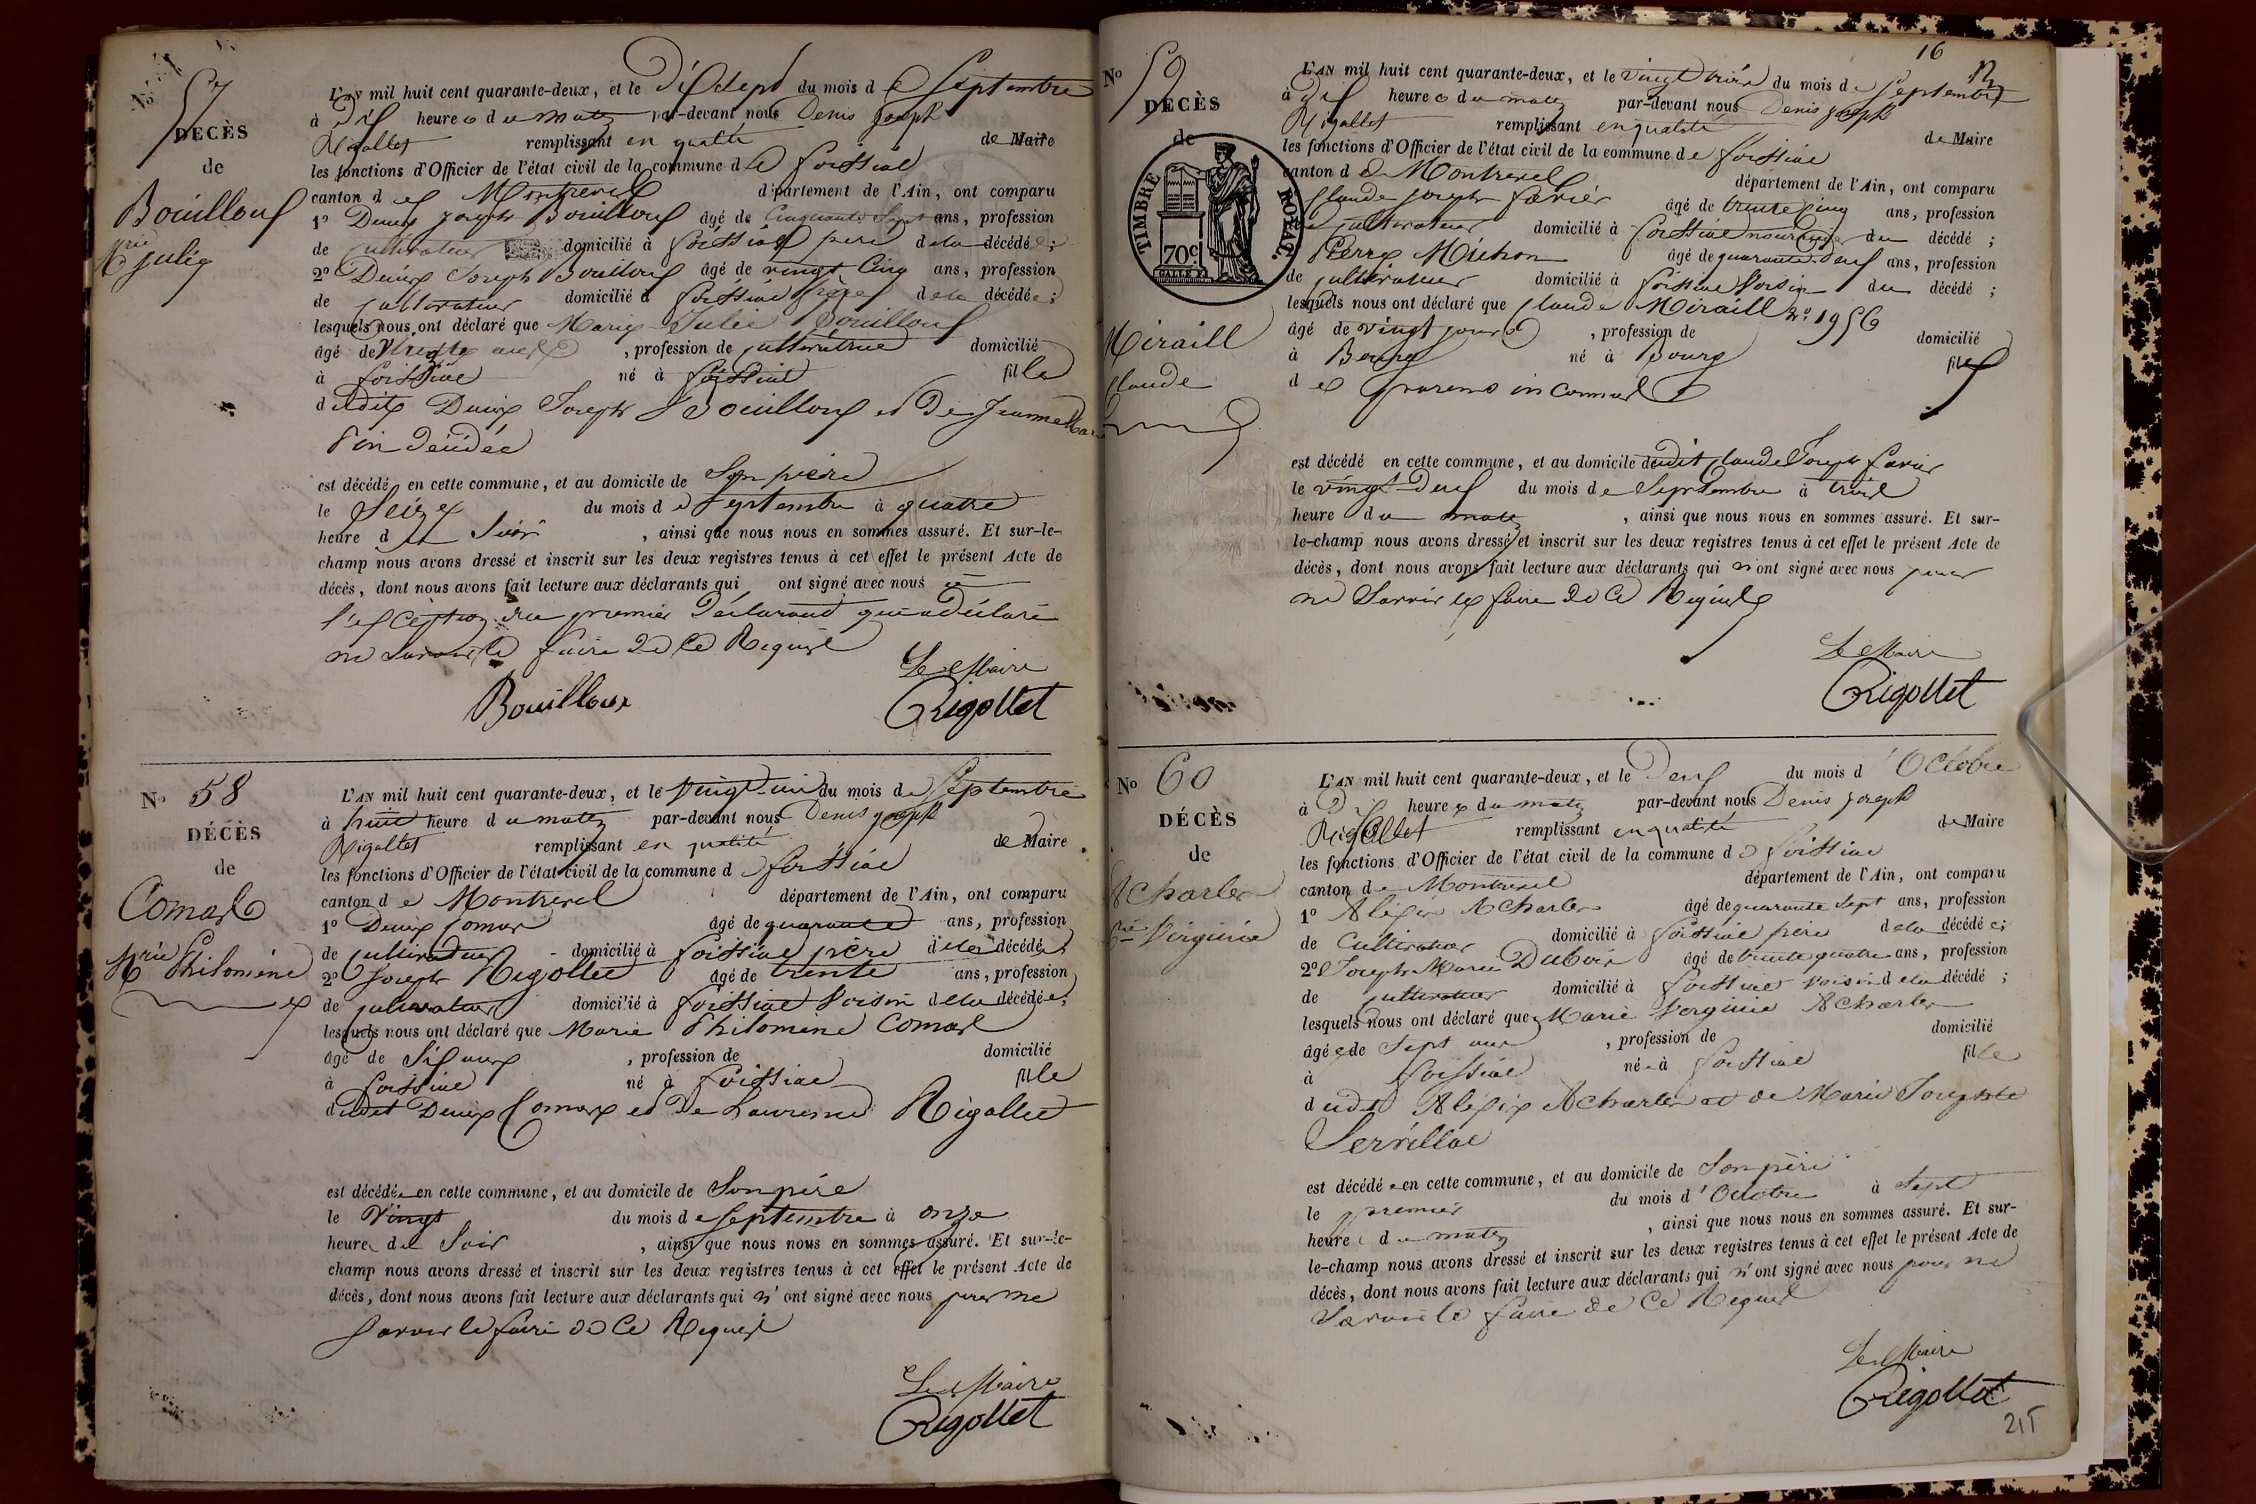 N° 57
DÉCÈS
de
Bouilloux
Mrie julie
L'AN mil huit cent quarante-deux, et le Dixsept du mois de Septembre
à Dix heures du matin par-devant nous Denis joseph
Rigollet remplissant en qualité de Maire
les fonctions d'Officier de l'état civil de la commune de foissiat
canton de Montrevel département de l'Ain, ont comparu
1° Denis joseph Bouilloux âgé de Cinquante Sept ans, profession
de cultivateur domicilié à foissiat père de la décédée;
2° Denis Joseph Bouilloux âgé de vingt Cinq ans, profession
de cultivateur domicilié à foissiat frère de la décédée;
lesquels nous ont déclaré que Marie Julie Bouilloux
âgé de , profession de cultivatrice domicilié
à foissiat né à foissiat fille
dudit Denis Joseph Bouilloux et De Jeanne Marie
décédée
est décédé en cette commune, et au domicile de Son père
le Seize du mois de Septembre à quatre
heure du Soir , ainsi que nous nous en sommes assuré. Et sur-le-
champ nous avons dressé et inscrit sur les deux registres tenus à cet effet le présent Acte de
décès, dont nous avons fait lecture aux déclarants qui ont signé avec nous à
l'exception du premier Déclarant qui a déclaré
ne Savoir le faire de ce Requis
Le Maire
Bouilloux Rigollet
N° 58
DÉCÈS
de
Comas
Mrie Philomène
L'AN mil huit cent quarante-deux, et le Vingt-un du mois de Septembre
à huit heure du matin par-devant nous Denis joseph
Rigollet remplissant en qualité de Maire
les fonctions d'Officier de l'état civil de la commune de foissiat
canton de Montrevel département de l'Ain, ont comparu
1° Denis Comas âgé de quarante ans, profession
de cultivateur domicilié à foissiat père de la décédée
2° Joseph Rigollet âgé de trente ans, profession
de cultivateur domicilié à foissiat Voisin de la décédée;
lesquels nous ont déclaré que Marie Philomène Comas
âgé de Six ans , profession de domicilié
à foissiat né à foissiat fille
dudit Denis Comas et De Laurence Rigollet
est décédée en cette commune, et au domicile de Son père
le Vingt du mois de Septembre à onze
heure du Soir , ainsi que nous nous en sommes assuré. Et sur-le-
champ nous avons dressé et inscrit sur les deux registres tenus à cet effet le présent Acte de
décès, dont nous avons fait lecture aux déclarants qui n'ont signé avec nous pour ne
Savoir le faire de ce Requis
Le Maire
Rigollet
16
N° 59
DÉCÈS
de
TIMBRE ROYAL.
70c
Miraill
Claude
L'AN mil huit cent quarante-deux, et le Vingt trois du mois de Septembre
à Dix heures du matin par-devant nous Denis joseph
Rigollet remplissant en qualité de Maire
les fonctions d'Officier de l'état civil de la commune de foissiat
canton de Montrevel département de l'Ain, ont comparu
Claude joseph favier âgé de trente cinq ans, profession
de cultivateur domicilié à foissiat nourricier du décédé;
Pierre Michon âgé de quarante-deux ans, profession
de cultivateur domicilié à foissiat Voisin du décédé;
lesquels nous ont déclaré que Claude Miraill n° 1956
âgé de vingt jours , profession de domicilié
à Bourg né à Bourg fils
de parens inconnus
est décédé en cette commune, et au domicile dudit Claude Joseph favier
le vingt-Deux du mois de Septembre à trois
heure du matin , ainsi que nous nous en sommes assuré. Et sur-
le-champ nous avons dressé et inscrit sur les deux registres tenus à cet effet le présent Acte de
décès, dont nous avons fait lecture aux déclarants qui n'ont signé avec nous pour
ne Savoir le faire de ce Requis
Le Maire
Rigollet
N° 60
DÉCÈS
de
Acharles
Mie Virginie
L'AN mil huit cent quarante-deux, et le Deux du mois d'Octobre
à Dix heures du matin par-devant nous Denis joseph
Rigollet remplissant en qualité de Maire
les fonctions d'Officier de l'état civil de la commune de foissiat
canton de Montrevel département de l'Ain, ont comparu
1° Alexis Acharles âgé de quarante sept ans, profession
de Cultivateur domicilié à foissiat père de la décédée;
2° Joseph Marie Dubois âgé de trente quatre ans, profession
de cultivateur domicilié à foissiat voisin de la décédé;
lesquels nous ont déclaré que Marie Virginie Acharles
âgée de Sept ans , profession de domicilié
à foissiat née à foissiat fille
dudit Alexis Acharles et de Marie Josephte
Servillat
est décédée en cette commune, et au domicile de Son père
le premier du mois d'Octobre à Sept
heure du matin , ainsi que nous nous en sommes assuré. Et sur-
le-champ nous avons dressé et inscrit sur les deux registres tenus à cet effet le présent Acte de
décès, dont nous avons fait lecture aux déclarants qui n'ont signé avec nous pour ne
Savoir le faire de ce Requis
Le Maire
Rigollet
215